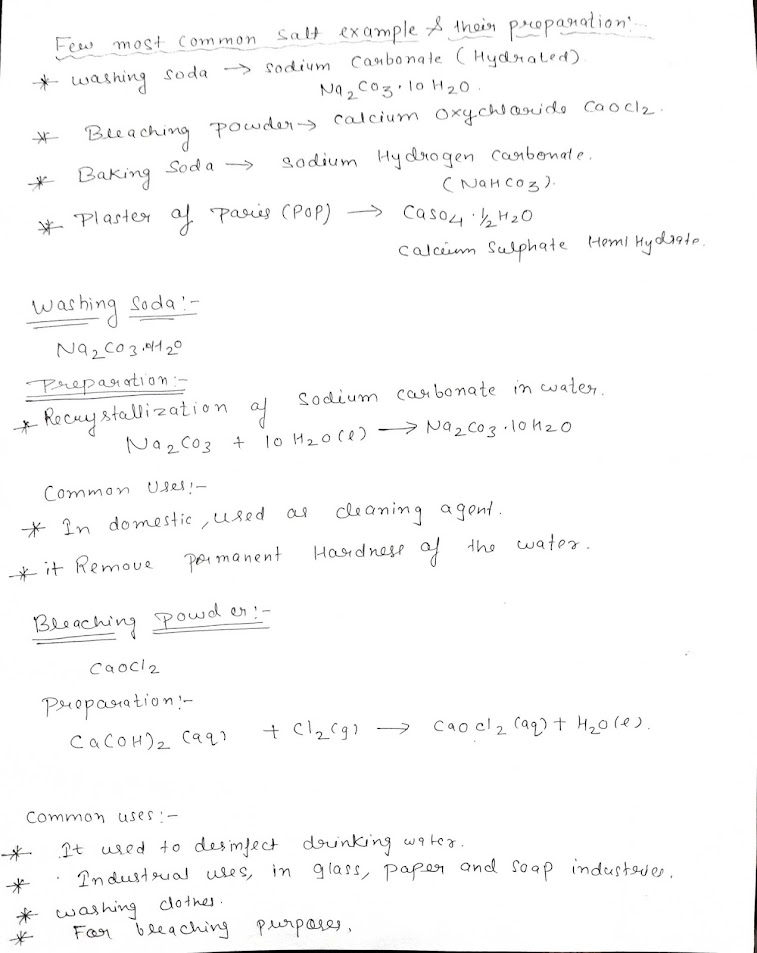 Few most common salt example & their preparation:-
* washing soda → sodium Carbonate (Hydrated)
Na2CO3·10H2O.
* Bleaching powder → calcium oxychloride CaOCl2.
* Baking Soda → sodium Hydrogen carbonate.
(NaHCO3).
* Plaster of Paris (POP) → CaSO4·1/2H2O
Calcium Sulphate Hemi Hydrate.
Washing Soda:-
Na2CO3·10H2O
Preparation:-
* Recrystallization of Sodium carbonate in water.
Na2CO3 + 10H2O(l) → Na2CO3·10H2O
Common Uses:-
* In domestic, used as cleaning agent.
* it Remove permanent Hardness of the water.
Bleaching powder:-
CaOCl2
Preparation:-
Ca(OH)2 (aq) + Cl2(g) → CaOCl2(aq) + H2O(l).
Common uses:-
* It used to desinfect drinking water.
* Industrial uses, in glass, paper and soap industries.
* washing clothes.
* For bleaching purposes.